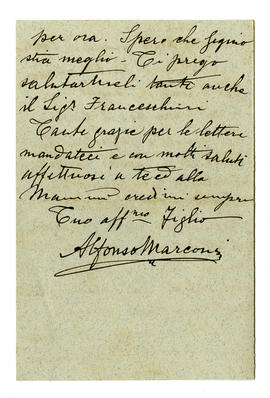 per ora. Spero che Gigino
stia meglio - Ti prego
salutartrieli tanto anche
il Sigr Franceschini
Tante grazie per le lettere
mandateci e con molti saluti
affettuosi a te ed alla
Mamma credimi sempre
Tuo affmo Figlio
Alfonso Marconi